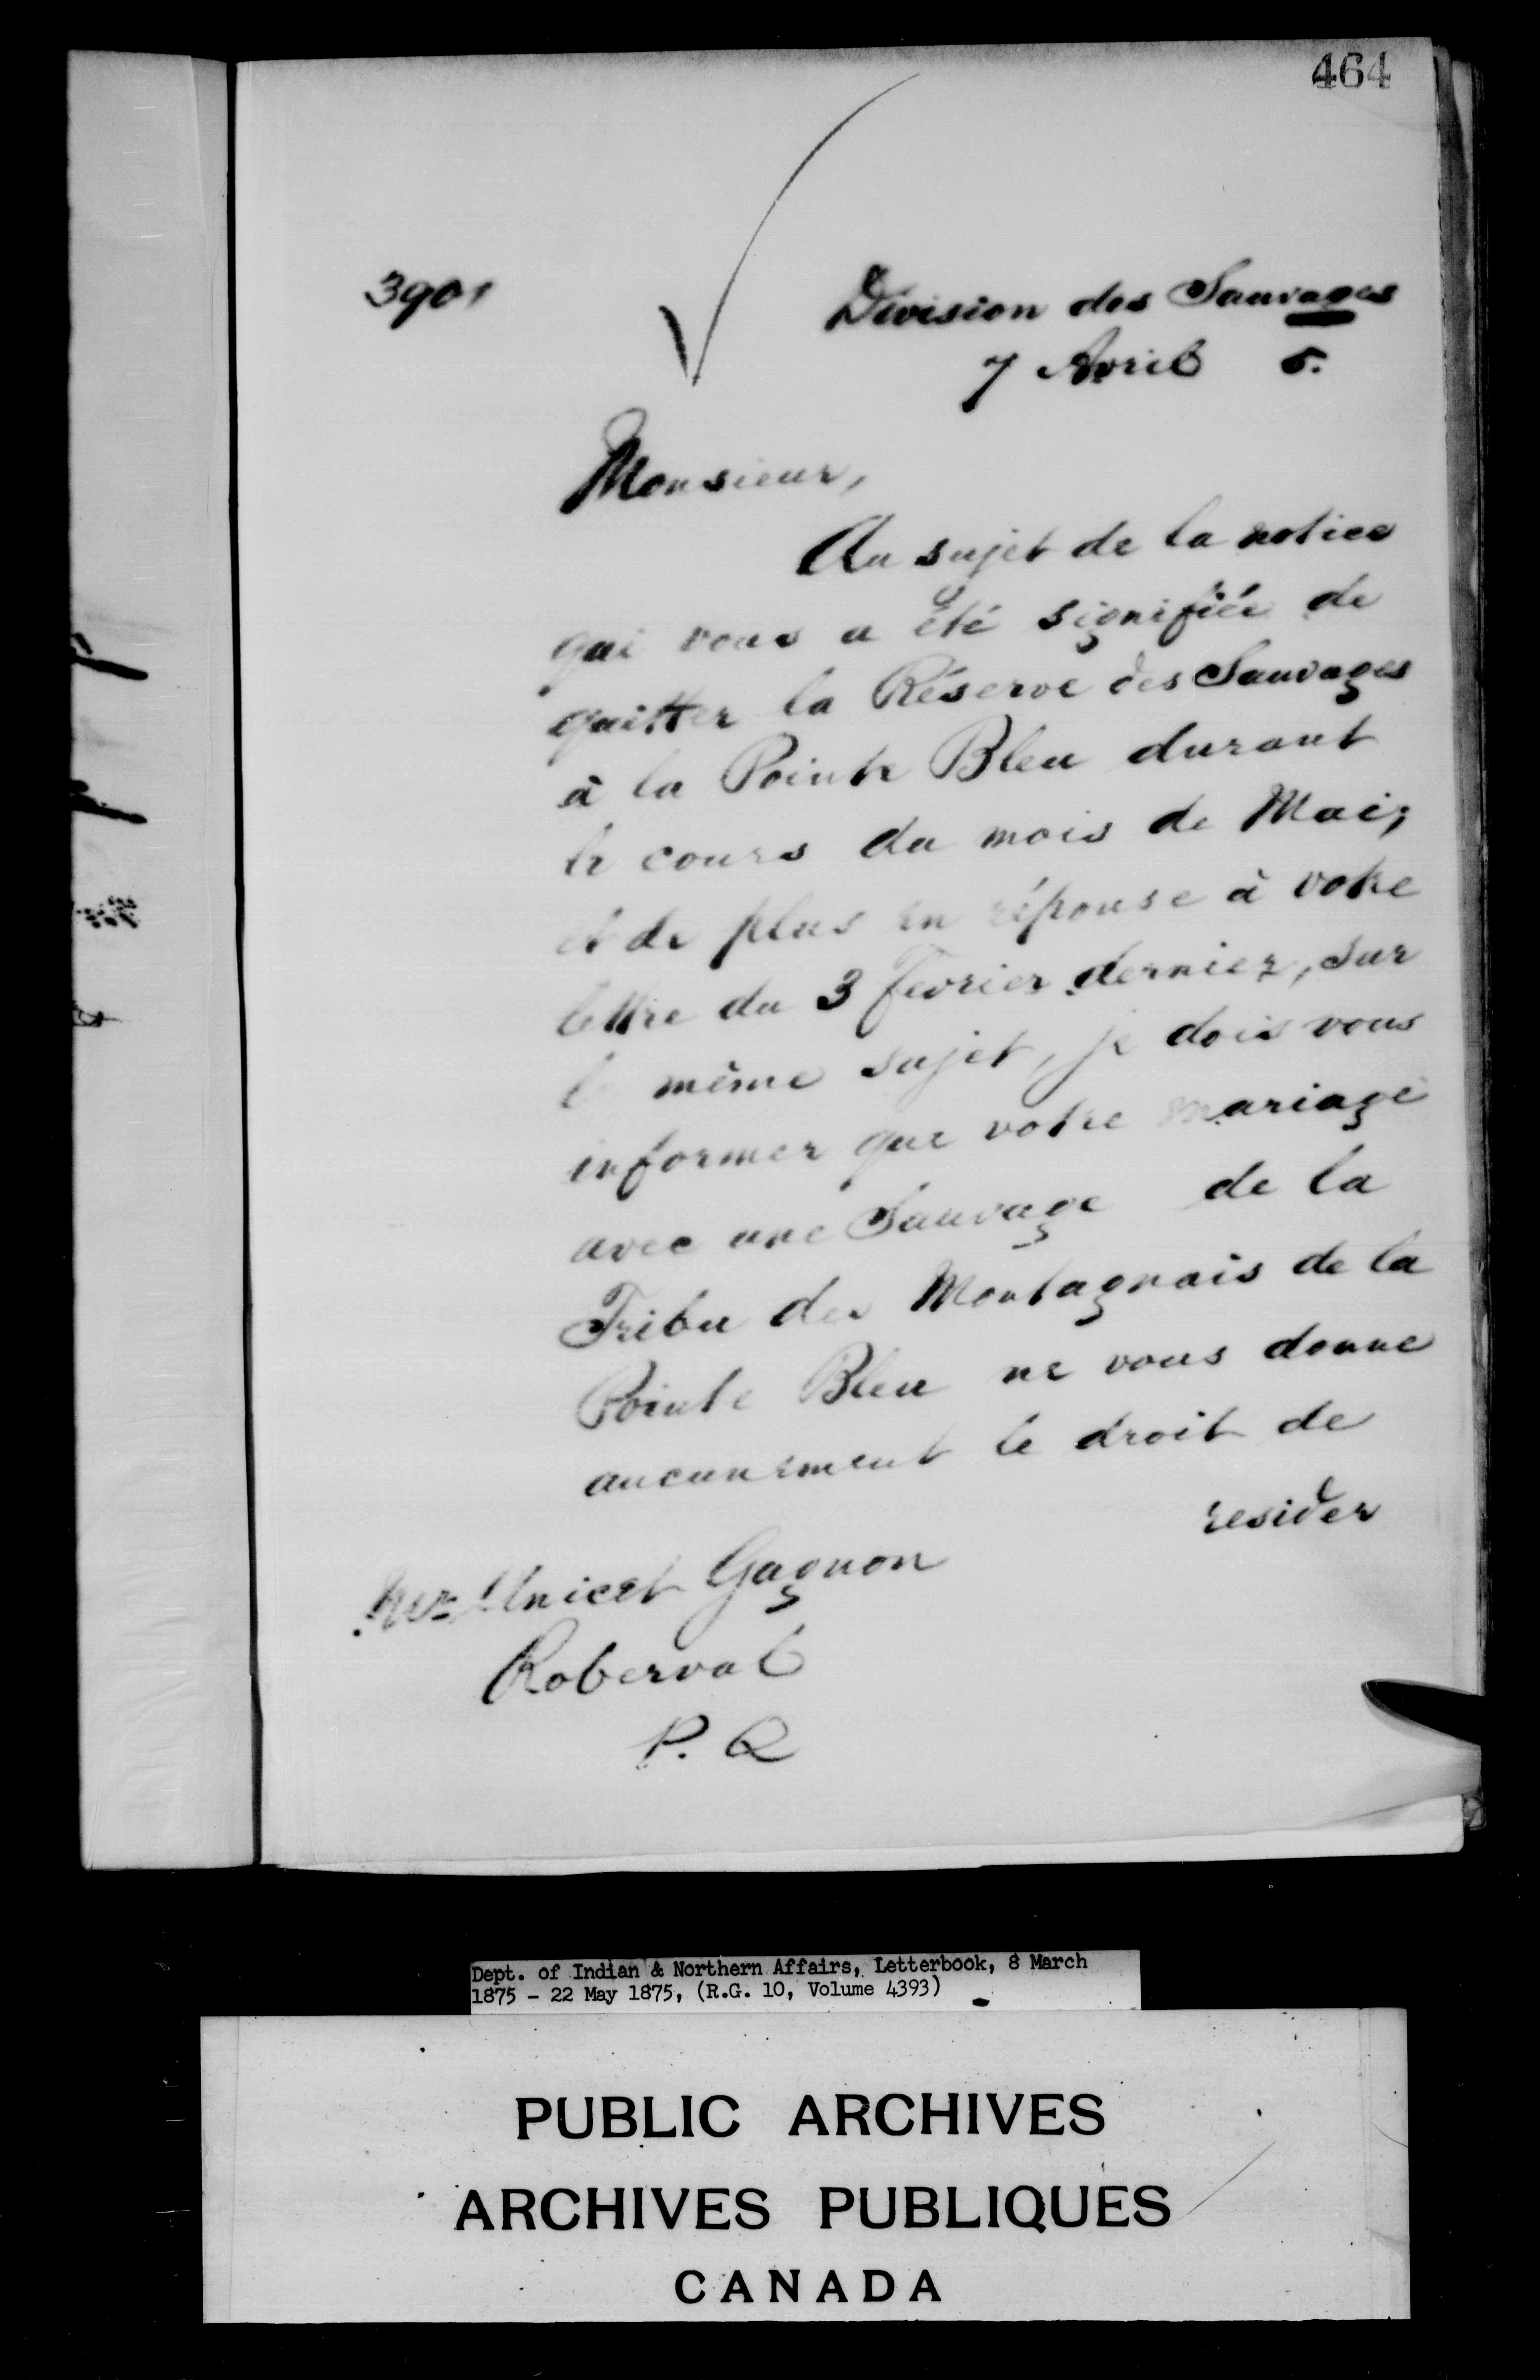 464
3901
Division des Sauvages
7 Avril 5.
Monsieur,
Au sujet de la notice
qui vous a été signifiée de
quitter la Réserve des Sauvages
à la Pointe Bleu durant
le cours du mois de Mai;
et de plus en réponse à votre
lettre du 3 fevrier dernier, sur
le même sujet, je dois vous
informer que votre mariage
avec une Sauvage de la
Tribu des Montagnais de la
Pointe Bleu ne vous donne
aucunement le droit de
resider
Mr. Gagnon
Roberval
P. Q
Dept. of Indian & Northern Affairs, Letterbook, 8 March
1875 - 22 May 1875, (R.G. 10, Volume 4393)
PUBLIC ARCHIVES
ARCHIVES PUBLIQUES
CANADA